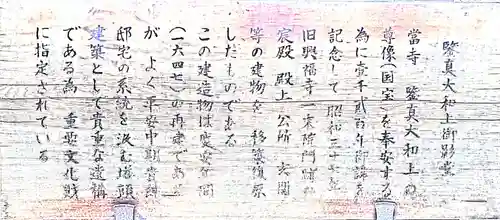 鑒真大和上御影堂
當寺 鑒真大和上の
尊像(国宝)を奉安する
為に壱千弐百年御諱を
記念して昭和三十七年
旧興福寺一乗院門跡の
宸殿 殿上 公所 玄関
等の建物を 移築復原
したものである
この建造物は慶安年間
(一六四七)の再建である
が よく平安中期貴紳
邸宅の系統を汲む塔頭
建築として貴重な遺構
である為 重要文化財
に指定されている